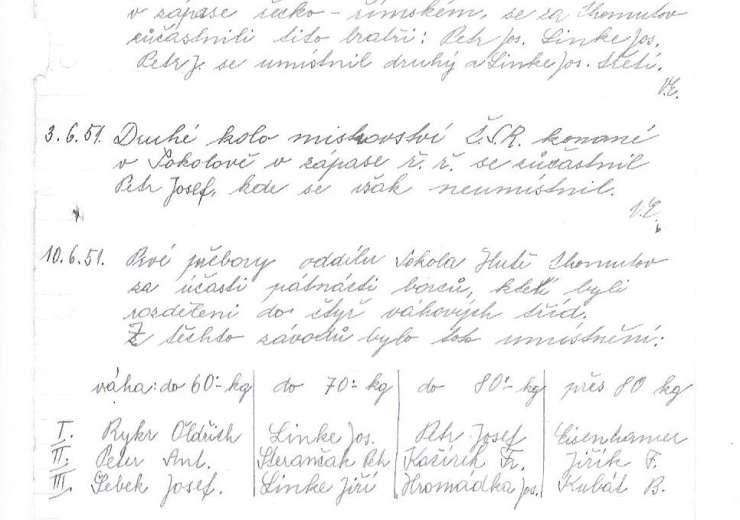 v zápase řecko-římském, se za Chomutov
zůčastnili tito bratři: Petr Jos. Linke Jos.
Petr J. se umístnil druhý a Linke Jos. třetí.
V.E.
3.6.51. Druhé kolo mistrovství Č.S.R. konané
v Sokolově v zápase ř. ř. se zůčastnil
Petr Josef, kde se však neumístnil.
V.E.
10.6.51. Prvé přebory oddílu Sokola Hutě Chomutov
za účasti pátnácti borců, kteří byli
rozděleni do čtyř váhových tříd.
Z těchto závodů bylo toto umístnění:
váha: do 60·- kg do 70·- kg do 80·- kg přes 80 kg
I. Rykr Oldřich Linke Jos. Petr Josef Eisenhamer
II. Peter Ant. Sterančák Petr Kačírek Fr. Jiřík F.
III. Šebek Josef. Linke Jiří Hromádka Jos. Kubát B.